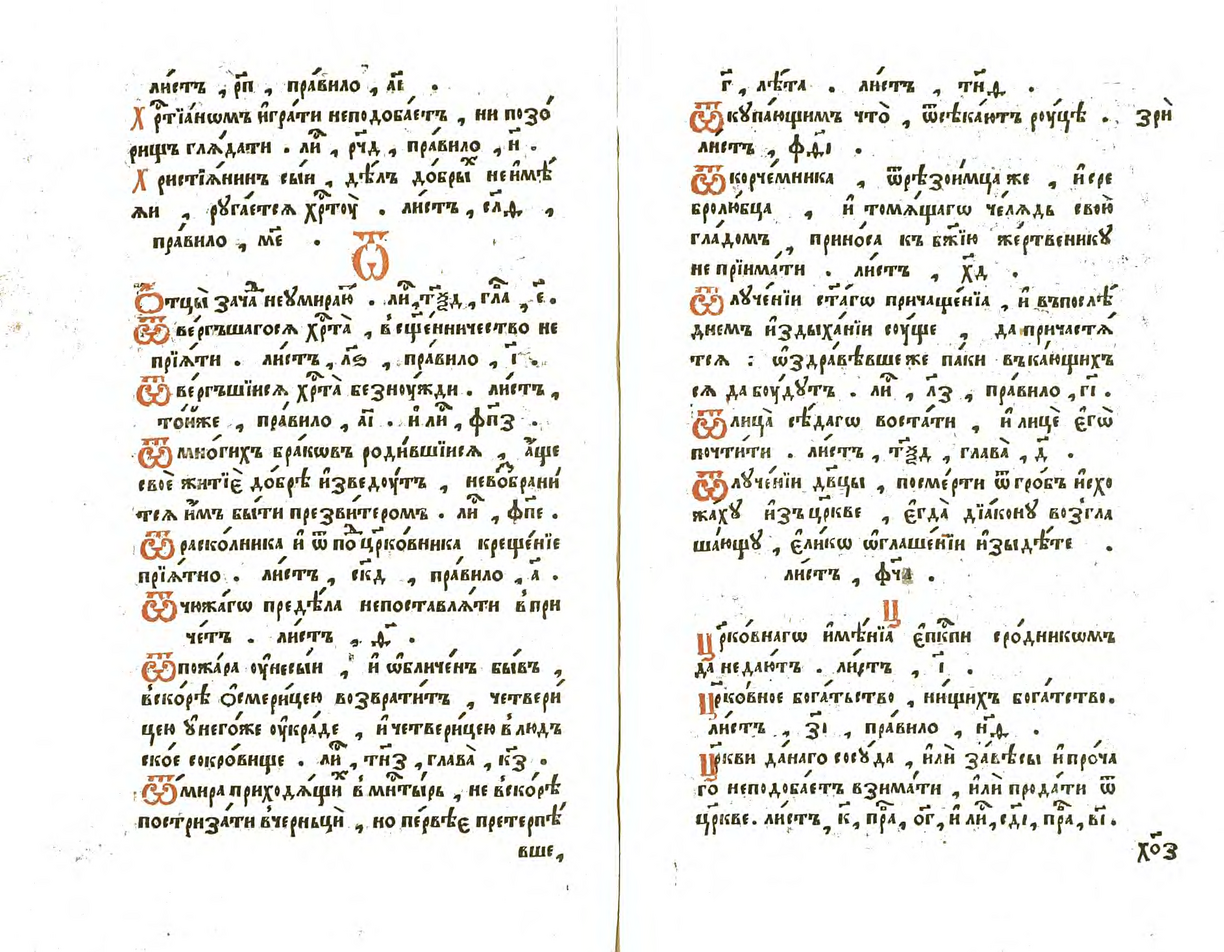 ли́стъ , р҃п , пра́вило , а҃і .
Хрⷭ҇тїа́нѡмъ и҆гра́ти неподоба́етъ , ни позо́
рищъ глѧ́дати . лиⷭ҇ , рч҃д , пра́вило , н҃ .
Христїѧ́нинъ сы́и , дѣ́лъ до́брыⷯ неимѣ́
ѧи , руга́етсѧ хрⷭ҇тоу̀ . ли́стъ , сл҃д ,
пра́вило , м҃е .
Ѿ
Ѻ҆тцы̀ зача́ⷧ неумира́ю . лиⷭ҇ , тѯ҃д , гла́ , є҃ .
Ѿве́ргъшагосѧ хрⷭ҇та̀ , в сщ҃е́нничество не
прїѧ́ти . ли́стъ , л҃ѕ , пра́вило , і҃ .
Ѿве́ргъшїисѧ хрⷭ҇та̀ безноу́жди . ли́стъ ,
то́йже , пра́вило , а҃і . и҆ лиⷭ҇ , фп҃з .
Ѿ мно́гихъ бра́ковъ роди́вшїисѧ , а҆́ще
своѐ житїѐ до́брѣ и҆зведоу́тъ , невоⷥбрани́
тсѧ и҆̀мъ бы́ти презви́теромъ . лиⷭ҇ , фп҃е .
Ѿ раско́лника и҆ ѿ поⷣцр҃ко́вника креще́нїе
прїѧ́тно . ли́стъ , ск҃д , пра́вило , а҃ .
Ѿ чюжа́гѡ предѣ́ла непоставлѧ́ти в при́
че́тъ . ли́стъ , д҃ .
Ѿ пожа́ра оу҆несы́и , и҆ ѡ҆бличе́нъ бы́въ ,
вско́рѣ ѻ҆смери́цею возврати́тъ , четвери́
цею ꙋ҆ него́же оу҆кра́де , и҆ четвери́цею в лю́дъ
ское сокро́вище . лиⷭ҇ , тн҃з , глава̀ , к҃з .
Ѿ мира приходѧ́щиⷯ в мⷪ҇нты́рь , не вско́рѣ
постриза́ти в черньцы̀ , но пе́рвѣе претерпѣ́
вше ,
г҃ , лѣ́та . ли́стъ , тн҃д .
Ѿкупа́ющимъ что̀ , ѿсѣка́ютъ роу́цѣ . зрѝ
ли́стъ , фд҃і .
Ѿ корче́мника , ѿ рѣзои́мца же , и҆ сре
бролю́бца , и҆ томѧ́щагѡ че́лѧдь свою̀
гла́домъ , прино́са къ бж҃їю же́ртвенникꙋ
не прїима́ти . ли́стъ , х҃д .
Ѿлуче́нїи ст҃а́гѡ причаще́нїа , и҆ въ послѣ́
днемъ и҆здыха́нїи соу́ще , да причастѧ́
тсѧ : ѡ҆здра́вѣвше же па́ки въ ка́ющихъ
сѧ да боу́дутъ . лиⷭ҇ , л҃з , пра́вило , г҃і .
Ѿ лица̀ сѣда́гѡ воста́ти , и҆ лицѐ є҆гѡ̀
почти́ти . ли́стъ , тѯ҃д , глава̀ , д҃ .
Ѿлуче́нїи дв҃цы , посме́рти ѿ гро́бъ и҆схо
жа́хꙋ и҆зъ цр҃кве , є҆гда̀ дїа́кону возгла
ша́ющꙋ , є҆ли́кѡ ѡ҆глаше́нїи и҆зыдѣ́те .
ли́стъ , фч҃а .
Ц
Цр҃ко́внагѡ и҆мѣ́нїа є҆пⷭ҇кпи сро́дникѡмъ
да не даю́тъ . ли́стъ , і҃ .
Цр҃ко́вное бога́тьство , ни́щихъ бога́тство .
ли́стъ , з҃і , пра́вило , н҃д .
Цр҃кви да́наго сосꙋ́да , и҆лѝ завѣ́сы и҆ про́ча
го̀ неподоба́етъ взима́ти , и҆лѝ прода́ти ѿ
цр҃кве . ли́стъ , к҃ , праⷡ҇ , о҃г , и҆ лиⷭ҇ , сд҃і , праⷡ҇ , в҃і .
хо҃з